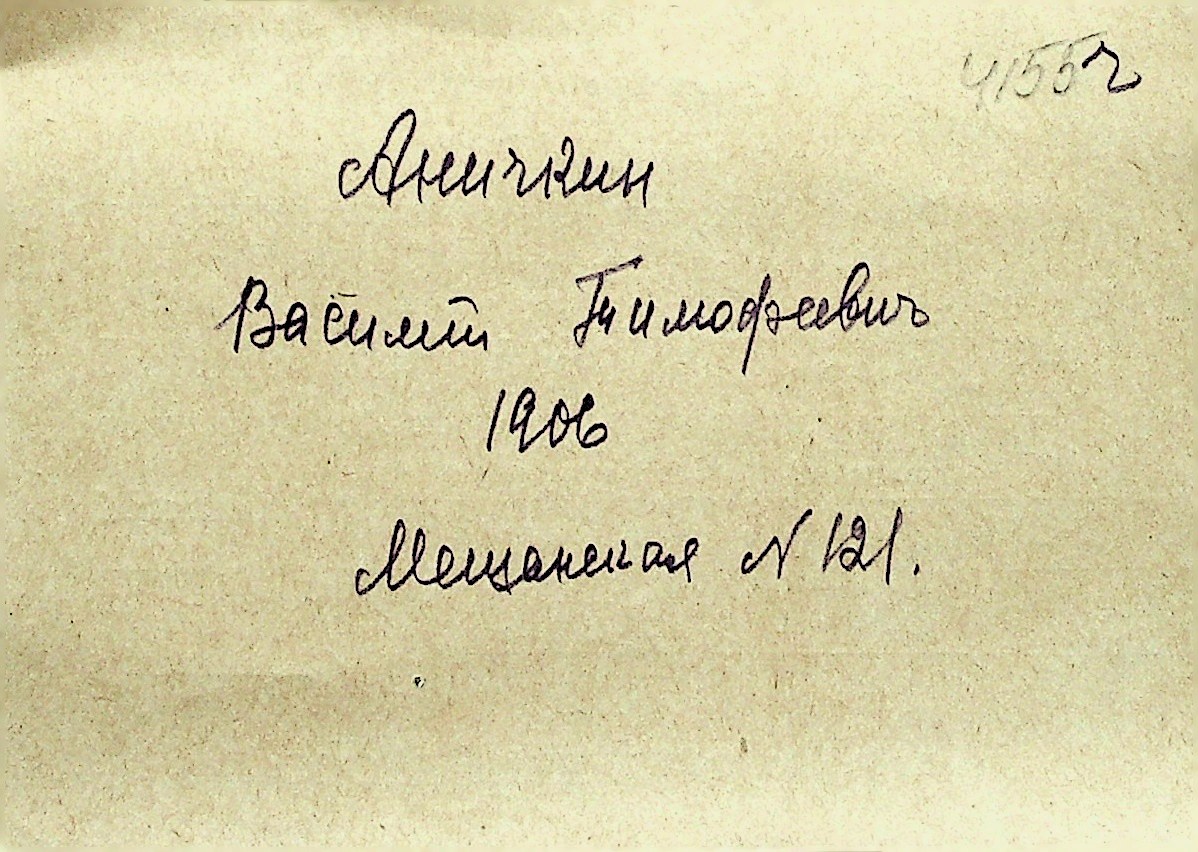 4155г
Аничкин
Василий Тимофеевич
1906
Мещанская N 121.